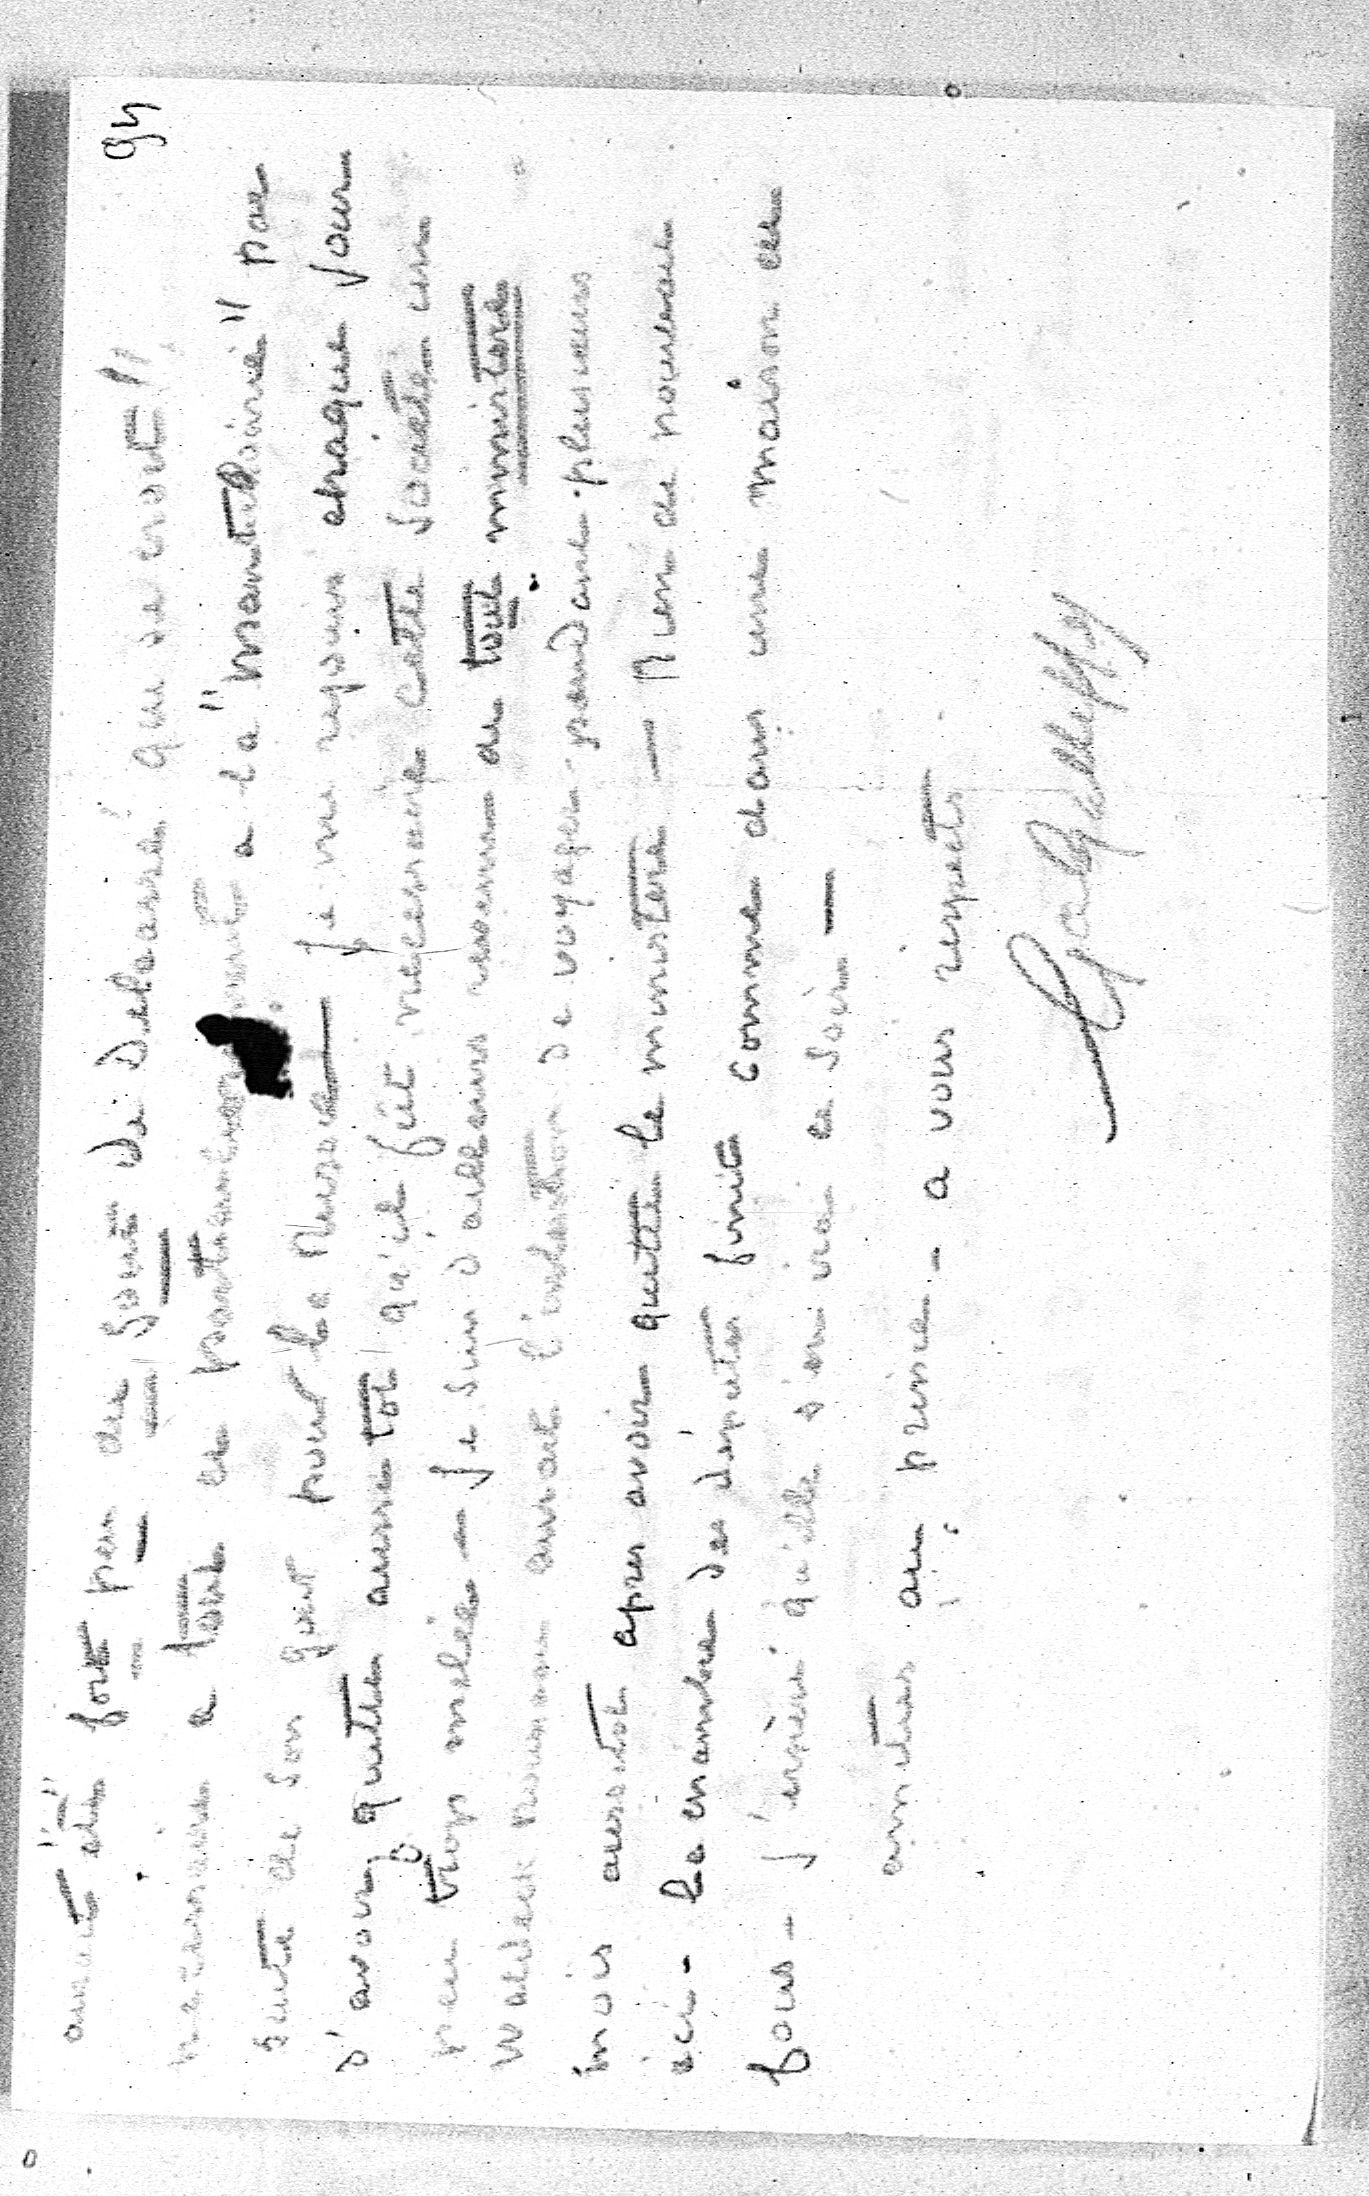 94
aurait été fort peu du goût de Delcassé que se croit !!
nécessaire a Paris et particulièrement a la "montebdoirie" par
suite de son gout pour la Russie — Je me réjouis chaque jour
d'avoir quitté aussitot qu'il fût necessaire cette Société un
peu trop mêlée — Je suis d'ailleurs revenu de tout ministère
Waldeck Rousseau aurait l'intention de voyager pendant plusieurs
mois aussitot apres avoir quitté le ministere — Rien de nouveau
ici - La chambre des députés finit comme dans une maison de
fous - J'espère qu'elle s'en ira ce Soir —
amitiés au prince - a vous respects
Gal Galliffet